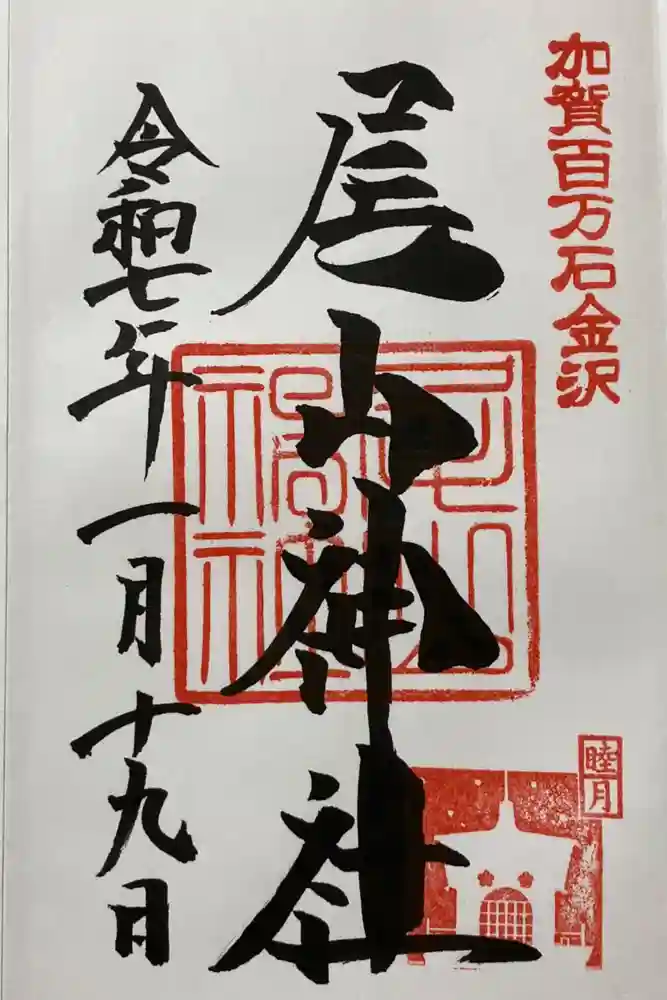 加賀百万石金沢
尾山神社
睦月
令和七年一月十九日